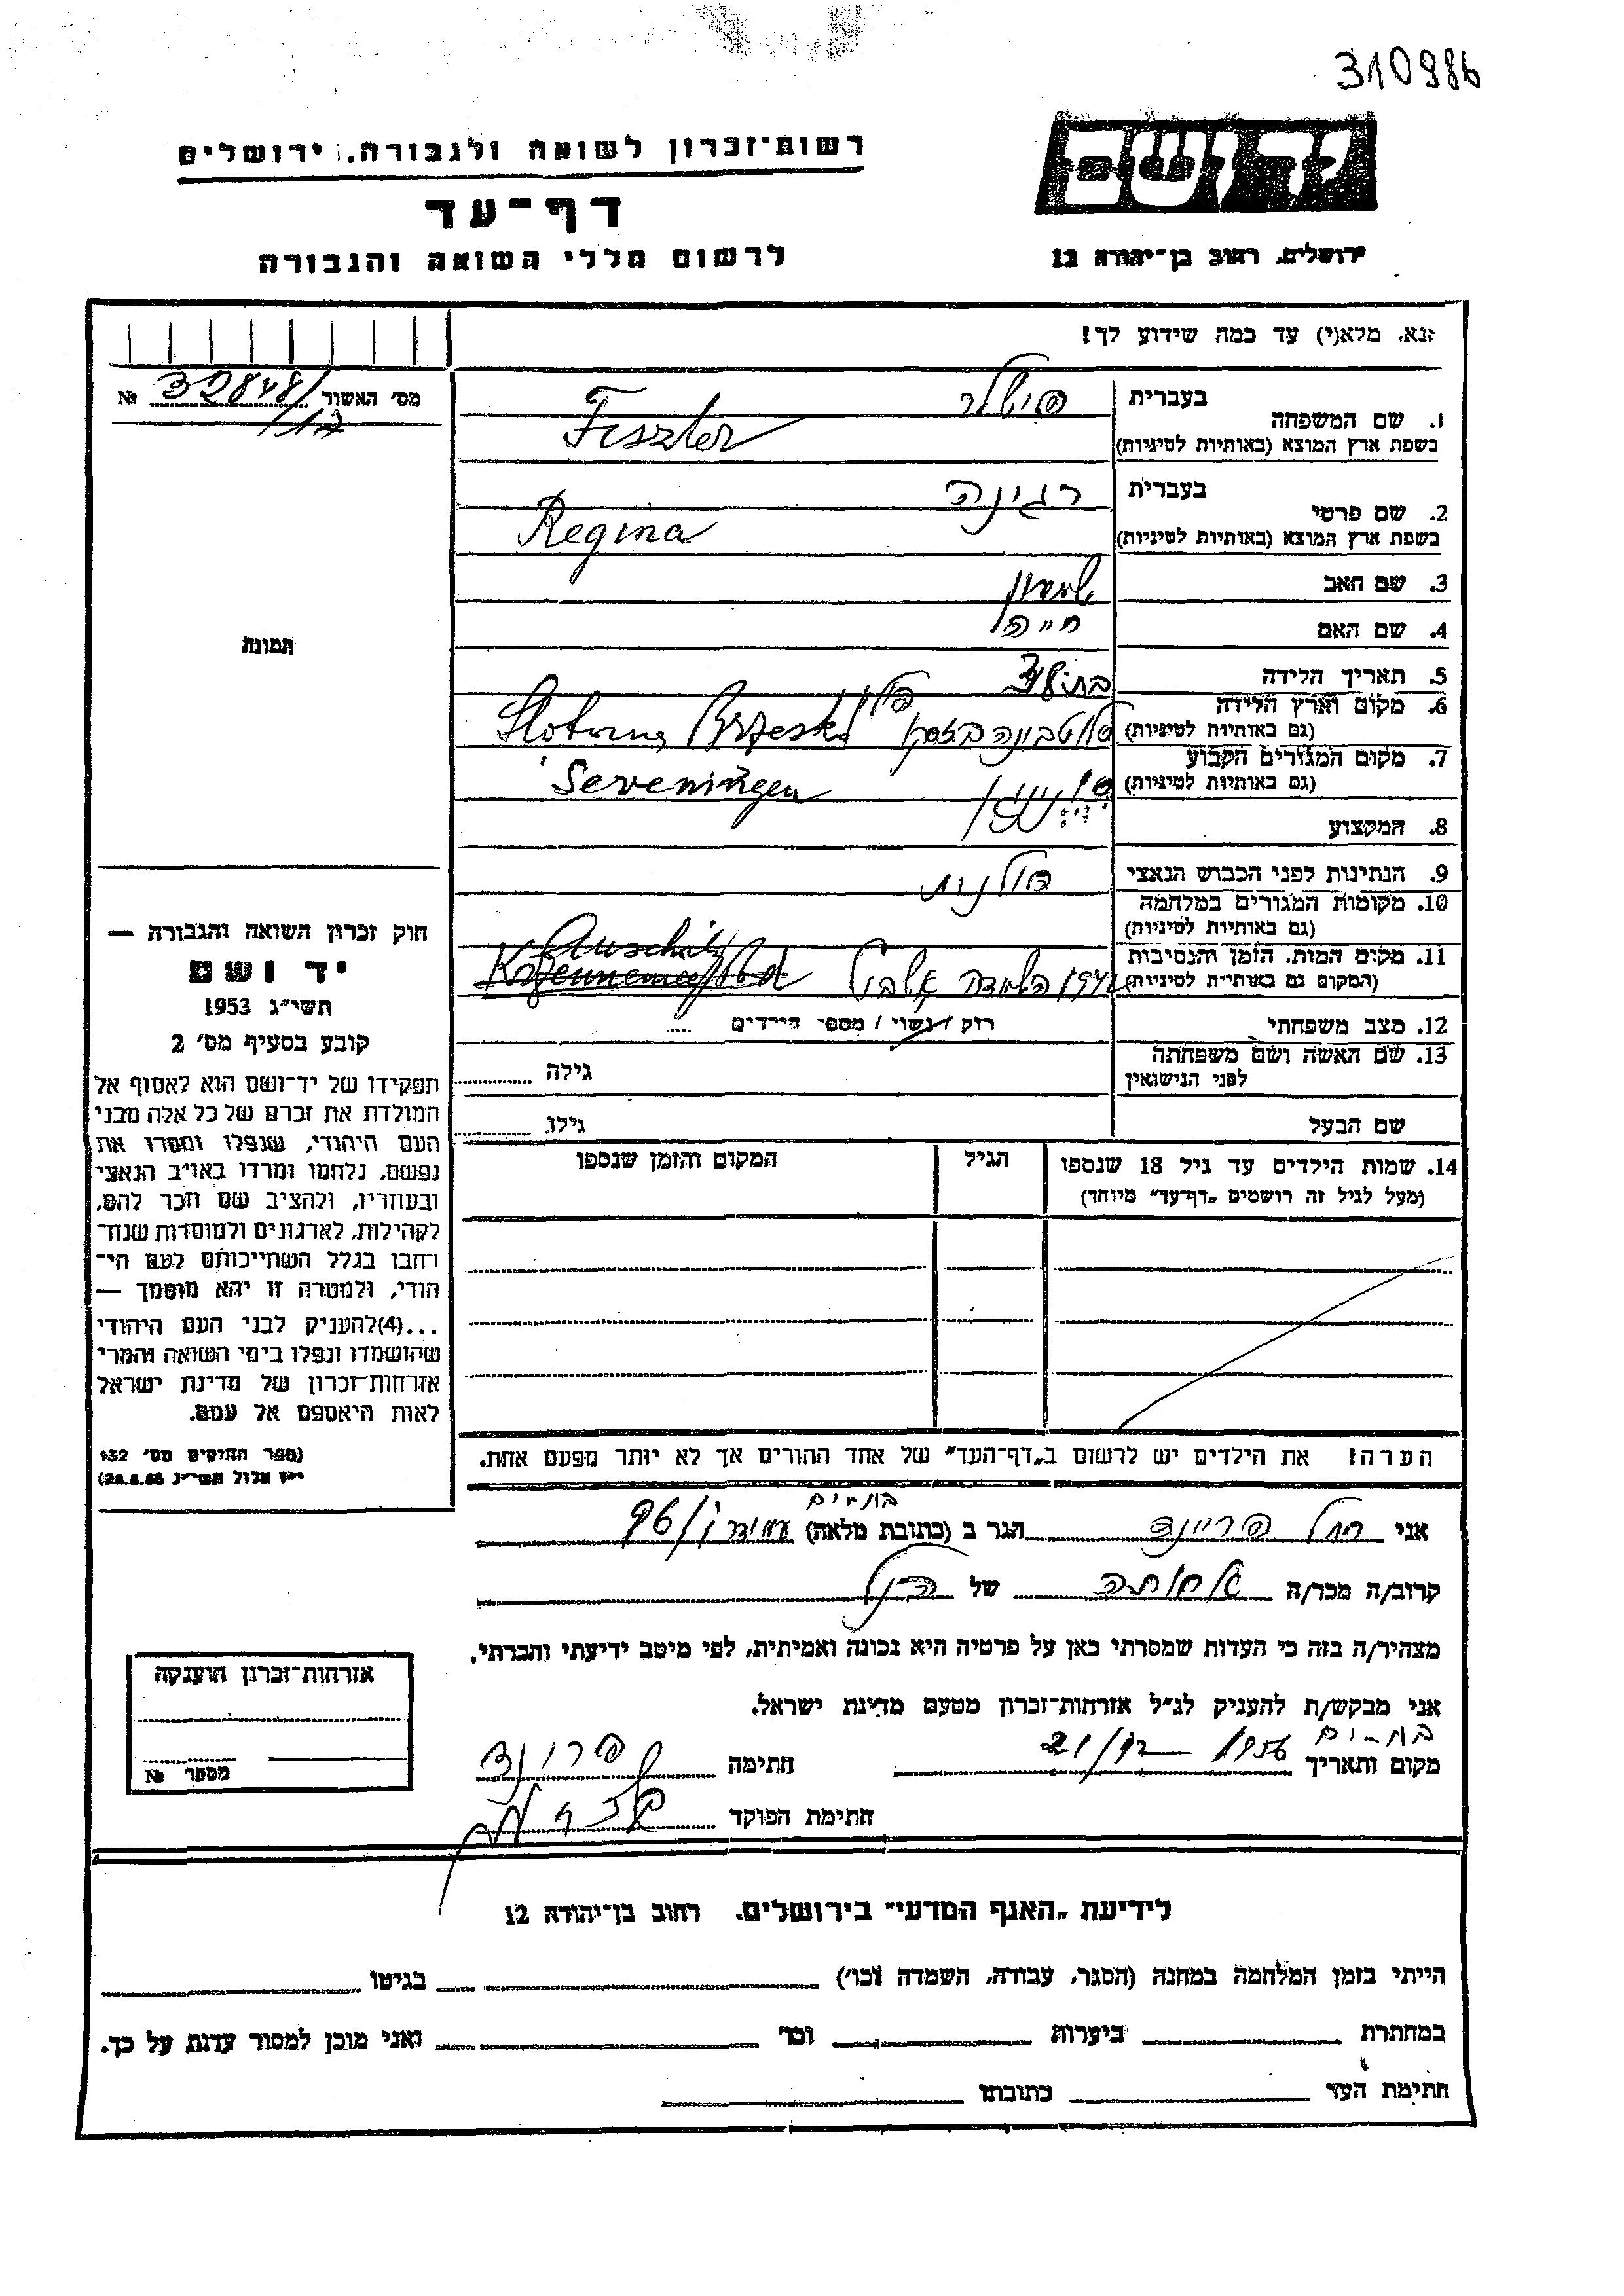 310986
יד ושם
ירושלים, רחוב בן־יהודה 12
רשות־זכרון לשואה ולגבורה, ירושלים
דף־עד
לרשום חללי השואה והגבורה
נא, מלא(י) עד כמה שידוע לך!
מס׳ האשור 32848/ №
תמונה
1. שם המשפחה
בעברית פישלר
בשפת ארץ המוצא (באותיות לטיניות) Fiszler
2. שם פרטי
בעברית רגינה
בשפת ארץ המוצא (באותיות לטיניות) Regina
3. שם האב שמעון
4. שם האם חיה
5. תאריך הלידה
6. מקום וארץ הלידה פולין
(גם באותיות לטיניות)
7. מקום המגורים הקבוע
(גם באותיות לטיניות) Seveningen
8. המקצוע
9. הנתינות לפני הכבוש הנאצי פולנית
10. מקומות המגורים במלחמה
(גם באותיות לטיניות)
11. מקום המות, הזמן והנסיבות
(המקום גם באותיות לטיניות) 1942 השמדה Auschitz
12. מצב משפחתי רוק / נשוי / מספר הילדים
13. שם האשה ושם משפחתה
לפני הנישואין גילה
שם הבעל גילו
14. שמות הילדים עד גיל 18 שנספו
(מעל לגיל זה רושמים „דף־עד״ מיוחד)
הגיל
המקום והזמן שנספו
הערה! את הילדים יש לרשום ב„דף־העד״ של אחד ההורים אך לא יותר מפעם אחת.
חוק זכרון השואה והגבורה —
יד ושם
תשי״ג 1953
קובע בסעיף מס׳ 2
תפקידו של יד־ושם הוא לאסוף אל
המולדת את זכרם של כל אלה מבני
העם היהודי, שנפלו ומסרו את
נפשם, נלחמו ומרדו באויב הנאצי
ובעוזריו, ולהציב שם וזכר להם,
לקהילות, לארגונים ולמוסדות שנח־
רבו בגלל השתייכותם לעם הי־
הודי, ולמטרה זו יהא מוסמך —
...(4)להעניק לבני העם היהודי
שהושמדו ונפלו בימי השואה והמרי
אזרחות־זכרון של מדינת ישראל
לאות היאספם אל עמם.
(ספר החוקים מס׳ 132
י״ז אלול תשי״ג 28.8.53)
בת־ים
אני רחל פריינד הגר ב (כתובת מלאה)
קרוב/ה מכר/ה אחותה של הנ״ל
מצהיר/ה בזה כי העדות שמסרתי כאן על פרטיה היא נכונה ואמיתית, לפי מיטב ידיעתי והכרתי.
אני מבקש/ת להעניק לנ״ל אזרחות־זכרון מטעם מדינת ישראל.
בת־ים
מקום ותאריך 1956 חתימה
חתימת הפוקד
אזרחות־זכרון הוענקה
מספר №
לידיעת „האגף המדעי״ בירושלים. רחוב בן־יהודה 12
הייתי בזמן המלחמה במחנה (הסגר, עבודה, השמדה וכו׳) בגיטו
במחתרת ביערות וכו׳ ואני מוכן למסור עדות על כך.
חתימת העד כתובתו